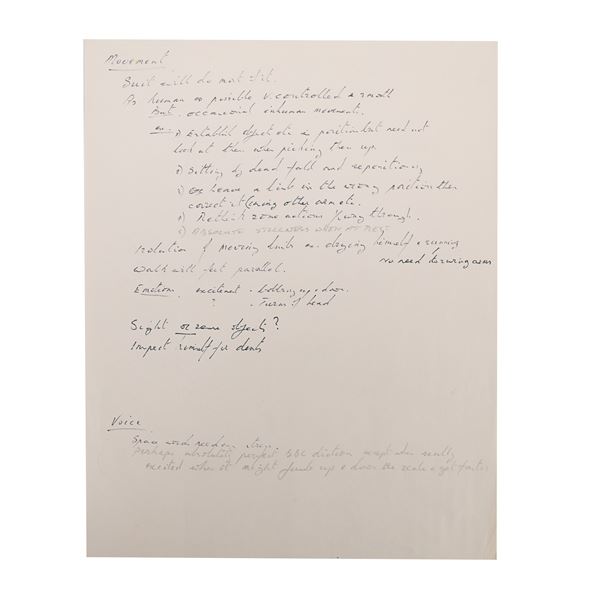 Movement
Suit will do most of it.
As human as possible v. controlled & smooth
But occasional inhuman movements.
ex:- 1) Establish objects etc position but need not
look at them when picking them up.
2) Sitting by dead fall and repositioning
3) Or leave a limb in the wrong position then
correct it
4) Rethink some actions halfway through.
5) ABSOLUTE STILLNESS WHEN AT REST
Isolation of moving limbs ex. drying himself & running
no need to swing arms
Walk with feet parallel.
Emotions excitement - bobbing up & down.
? - Turns of head
Sight or sense objects?
Inspect himself for dents
Voice
Space words need
Perhaps absolutely perfect BBC diction except when really
excited when it might go up & down the scale & get faster